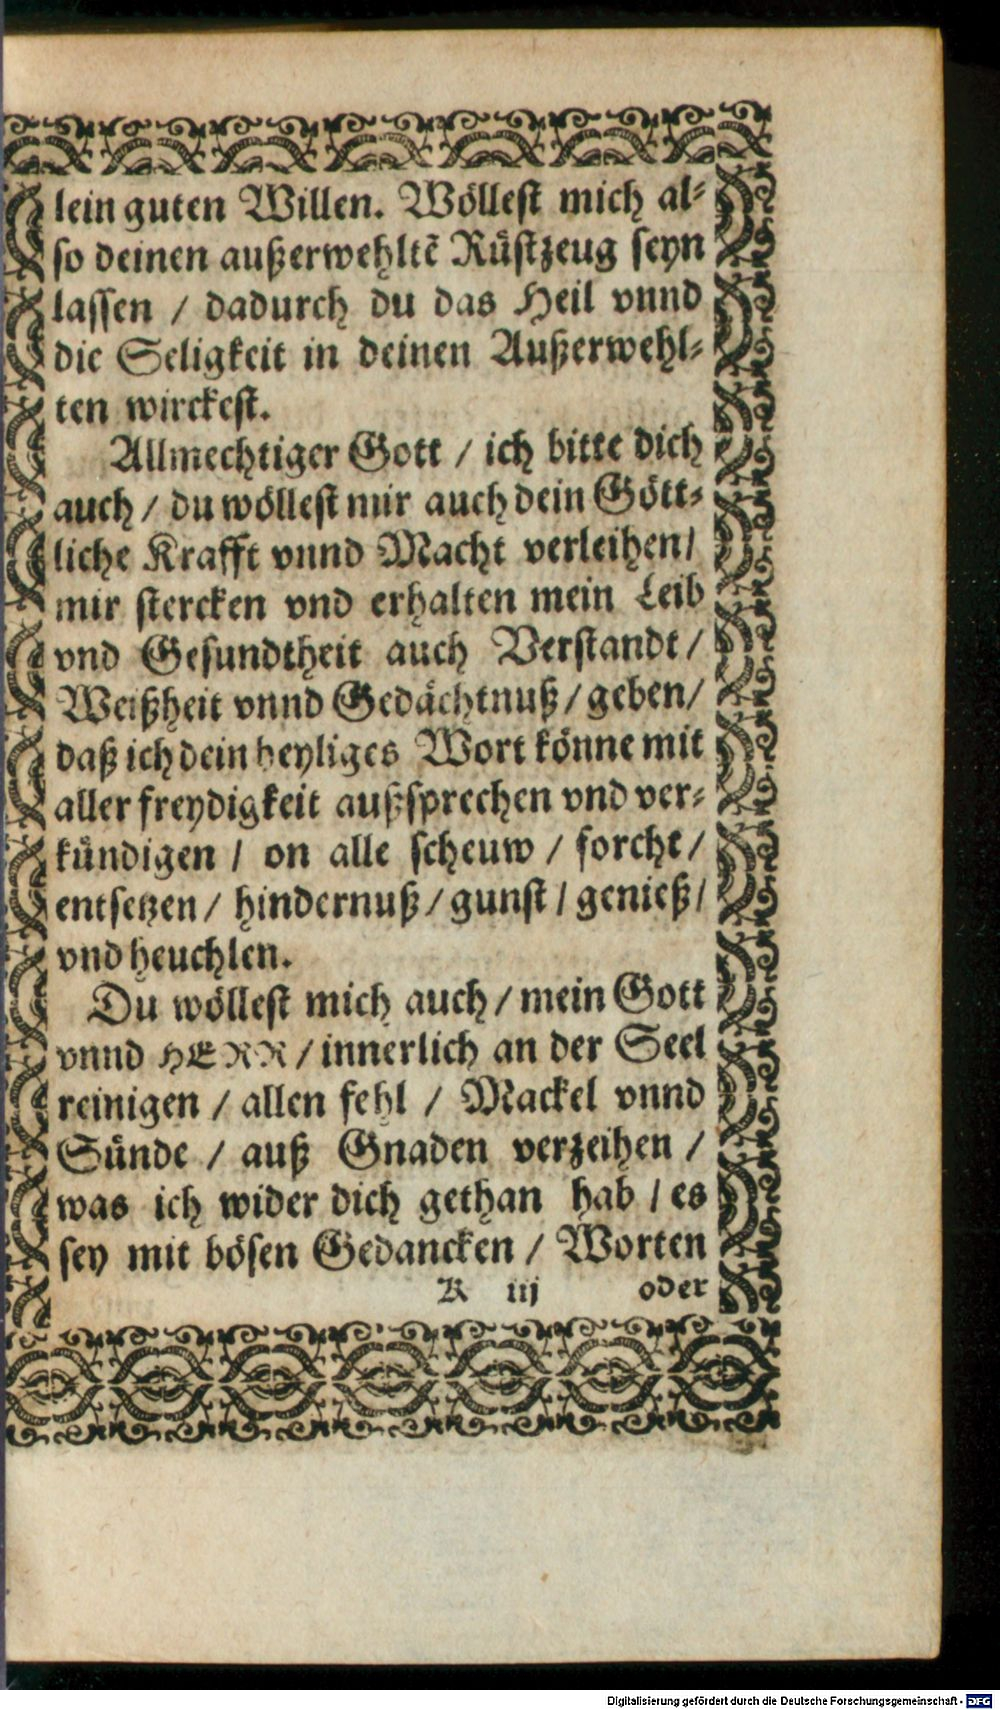 lein guten Willen. Wöllest mich al⸗
so deinen außerwehltē Rüstzeug seyn
lassen / dadurch du das Heil vnnd
die Seligkeit in deinen Außerwehl⸗
ten wirckest.
Allmechtiger Gott / ich bitte dich
auch / du wöllest mir auch dein Gött⸗
liche Krafft vnnd Macht verleihen/
mir stercken vnd erhalten mein Leib
vnd Gesundtheit auch Verstandt /
Weißheit vnnd Gedächtnuß / geben/
daß ich dein heyliges Wort könne mit
aller freydigkeit außsprechen vnd ver⸗
kündigen / on alle scheuw / forcht /
entsetzen / hindernuß / gunst / genieß /
vnd heuchlen.
Du wöllest mich auch / mein Gott
vnnd HERR / innerlich an der Seel
reinigen / allen fehl / Mackel vnnd
Sünde / auß Gnaden verzeihen /
was ich wider dich gethan hab / es
sey mit bösen Gedancken / Worten
K iij oder
Digitalisierung gefördert durch die Deutsche Forschungsgemeinschaft - DFG